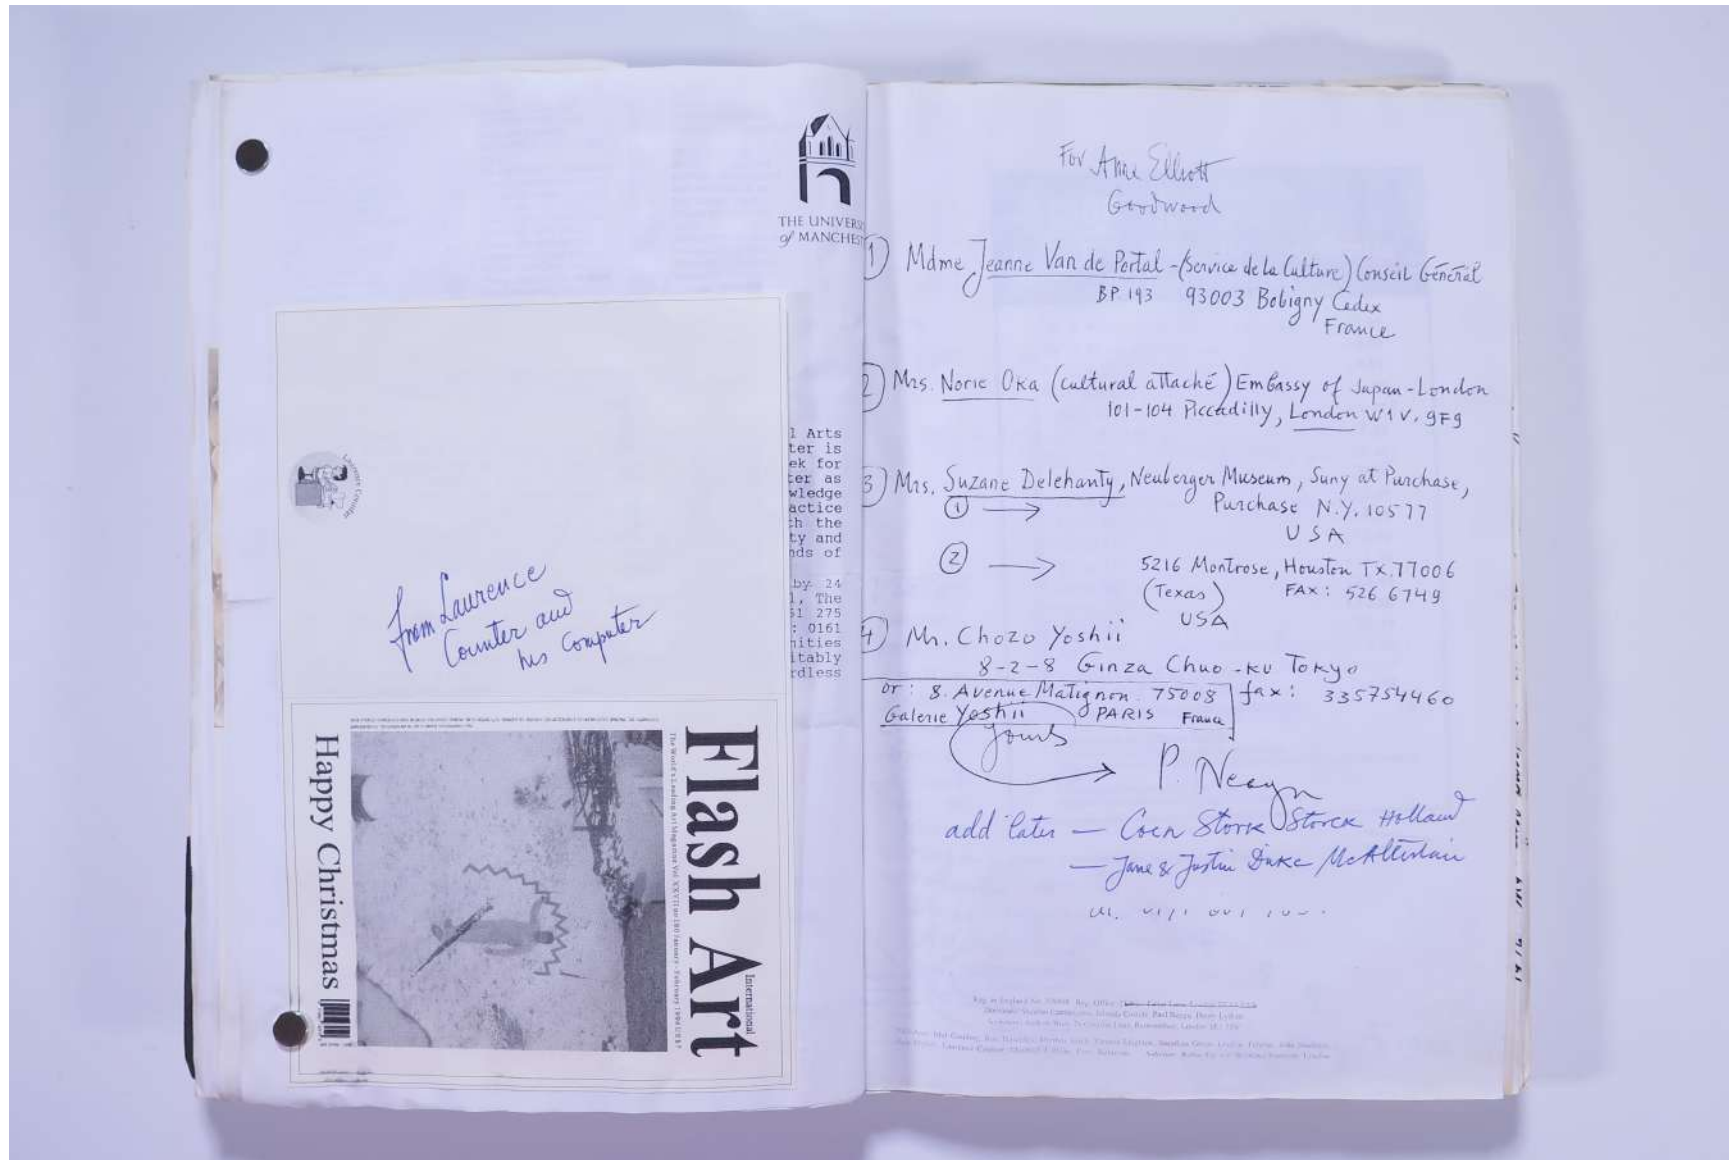 THE UNIVERS
of MANCHEST
l Arts
ter is
ek for
ter as
wledge
actice
th the
ty and
nds of
by 24
l, The
61 275
: 0161
nities
itably
rdless
Laurence Counter
from Laurence
Counter and
his Computer
Flash Art
International
The World's Leading Art Magazine Vol XXVII no 180 January - February 1994 US $7
Happy Christmas
For Anne Elliott
Goodwood
1) Mdme Jeanne Van de Portal - (Service de la Culture) Conseil Général
BP 193 93003 Bobigny Cedex
France
2) Mrs. Norie Oka (cultural attaché) Embassy of Japan - London
101-104 Piccadilly, London W1V. 9F9
3) Mrs. Suzane Delehanty, Neuberger Museum, Suny at Purchase,
1 → Purchase N.Y. 10577
USA
2 → 5216 Montrose, Houston TX.77006
(Texas) FAX: 526 6749
USA
4) Mr. Chozo Yoshii
8-2-8 Ginza Chuo-ku Tokyo
or: 8. Avenue Matignon. 75008 fax: 335754460
Galerie Yoshii PARIS France
Yours
P. Neagu
add later — Coen Stork Storck Holland
— Jane & Justin Duke McAlistair